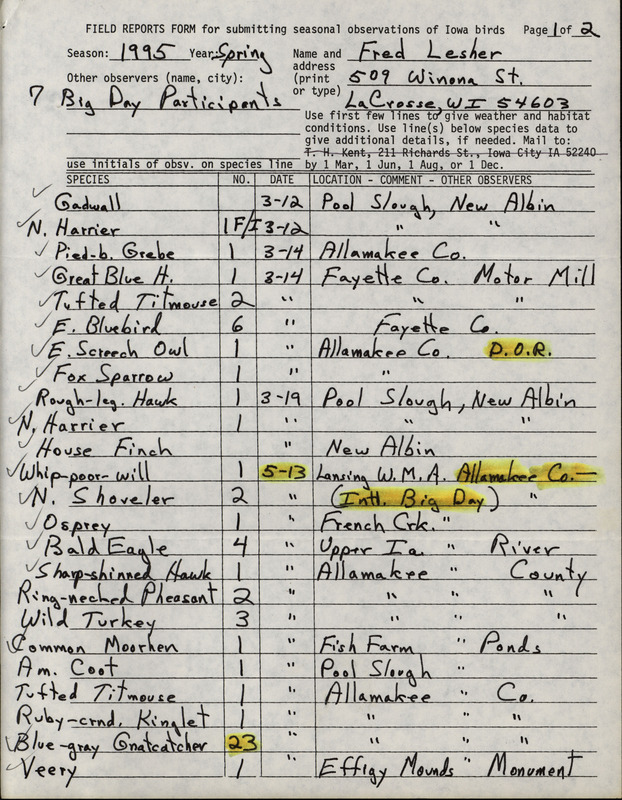 FIELD REPORTS FORM for submitting seasonal observations of Iowa birds Page 1 of 2
Season: 1995 Year: Spring Name and address (print or type) Fred Lesher
Other observers (name, city): 509 Winona St.
7 Big Day Participants LaCrosse, WI 54603
Use first few lines to give weather and habitat
conditions. Use line(s) below species data to
give additional details, if needed. Mail to:
T. H. Kent, 211 Richards St., Iowa City IA 52240
use initials of obsv. on species line by 1 Mar, 1 Jun, 1 Aug, or 1 Dec.
SPECIES NO. DATE LOCATION - COMMENT - OTHER OBSERVERS
✓ Gadwall 3-12 Pool Slough, New Albin
✓ N. Harrier 1F/I 3-12 " "
✓ Pied-b. Grebe 1 3-14 Allamakee Co.
✓ Great Blue H. 1 3-14 Fayette Co. Motor Mill
✓ Tufted Titmouse 2 " " "
✓ E. Bluebird 6 " Fayette Co.
✓ E. Screech Owl 1 " Allamakee Co. D.O.R.
✓ Fox Sparrow 1 " "
✓ Rough-leg. Hawk 1 3-19 Pool Slough, New Albin
✓ N. Harrier 1 " " "
✓ House Finch " New Albin
✓ Whip-poor-will 1 5-13 Lansing W.M.A. Allamakee Co.—
✓ N. Shoveler 2 " (Intl. Big Day) "
✓ Osprey 1 " French Crk. "
✓ Bald Eagle 4 " Upper Ia. " River
✓ Sharp-shinned Hawk 1 " Allamakee " County
Ring-necked Pheasant 2 " " " "
Wild Turkey 3 " " " "
✓ Common Moorhen 1 " Fish Farm " Ponds
Am. Coot 1 " Pool Slough "
Tufted Titmouse 1 " Allamakee " Co.
Ruby-crnd. Kinglet 1 " " " "
✓ Blue-gray Gnatcatcher 23 " " " "
✓ Veery 1 " Effigy Mounds " Monument